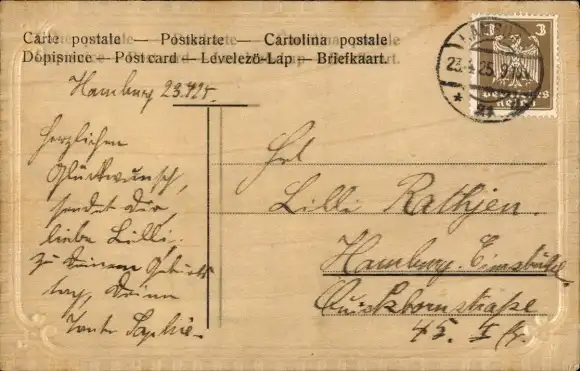 Carte postale — Postkarte — Cartolina postale
Dopisnice — Post card — Levelező-Lap — Briefkaart.
Hamburg 23.4.25.
Herzlichen
Glückwunsch,
sendet dir,
liebe Lilli.
zu deinem Geburts
tag, deine
Tante Sophie.
Frl
Lilli Rathjen.
Hamburg-Eimsbüttel
Quickbornstraße
45. I
3
Deutsches
Reich
23.4.25.